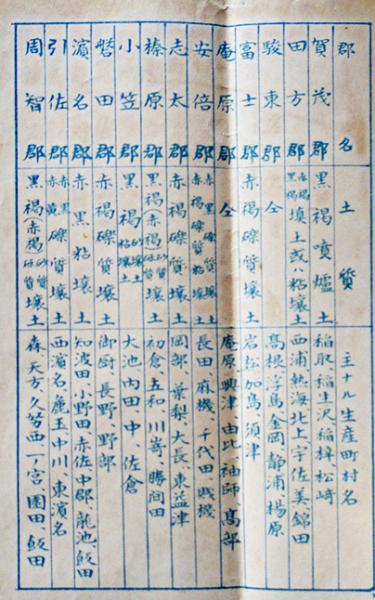 郡名 土質 主ナル生産町村名
賀茂郡 黒褐噴爐土 稲取、稲生沢、稲梓、松崎
田方郡 黒褐赤褐埴土或ハ粘壌土 西浦、熱海、北上、宇佐美、錦田
駿東郡 仝 高根、浮島、金岡、静浦、楊原
富士郡 赤褐礫質壌土 岩松、加島、須津
庵原郡 仝 庵原、興津、由比、袖師、高部
安倍郡 赤褐黒褐礫質粘壌土 長田、麻機、千代田、賤機
志太郡 赤褐礫質壌土 岡部、葉梨、大長、東益津
榛原郡 黒褐(赤褐)砂質礫質壌土 初倉、五和、川崎、勝間田
小笠郡 黒褐粘壌土 大池、内田、中、佐倉
磐田郡 赤褐礫質壌土 御厨、長野、野部
濱名郡 赤黒粘土 知波田、小野田、赤佐、中郡、龍池、飯田
引佐郡 赤黒赤黄礫質壌土 西濱名、麁玉、中川、東濱名
周智郡 黒褐(赤褐)砂質礫質壌土 森、天方、久努西、一宮、園田、飯田